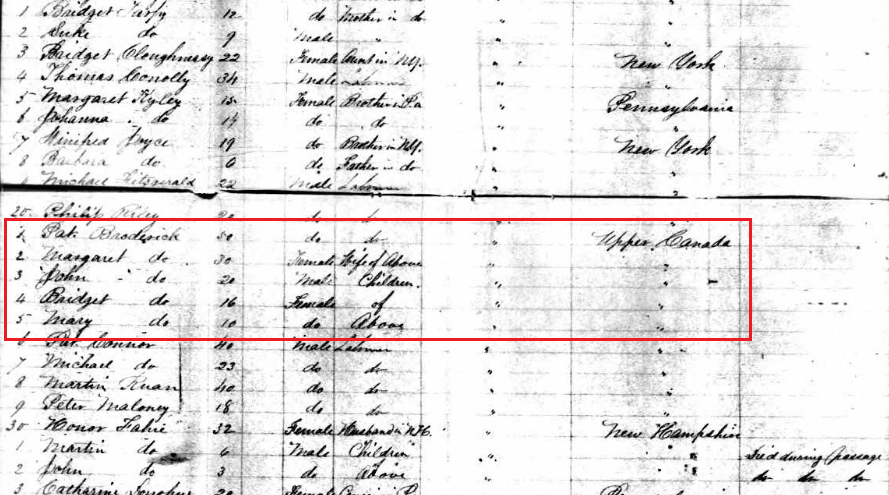 1 Bridget Tarpy 12 do Mother in do
2 Luke do 9 Male "
3 Bridget Cloughnessy 22 Female Aunt in N.Y. " New York
4 Thomas Conolly 34 Male Laborer " "
5 Margaret Kyley 15 Female Brother in Pa " Pennsylvania
6 Johanna do 14 do do " "
7 Winifred Joyce 19 do Brother in N.Y. " New York
8 Barbara do 6 do Father in do " "
Michael Fitzgerald 22 Male Laborer " "
20 Philip do do "
1 Pat. Broderick 50 do do Upper Canada
2 Margaret do 30 Female Wife of Above " "
3 John do 20 Male Children " "
4 Bridget do 16 Female of " "
5 Mary do 10 do Above " "
6 Pat. Connor 40 Male Laborer " "
7 Michael do 23 do do " "
8 Martin 40 do do " "
9 Peter Maloney 18 do do " "
30 Honor Fahie 32 Female Husband in N.H. " New Hampshire
1 Martin do 6 Male Children " " Died during passage
2 John do 3 do Above " " do do do
3 Catharine 20 Female